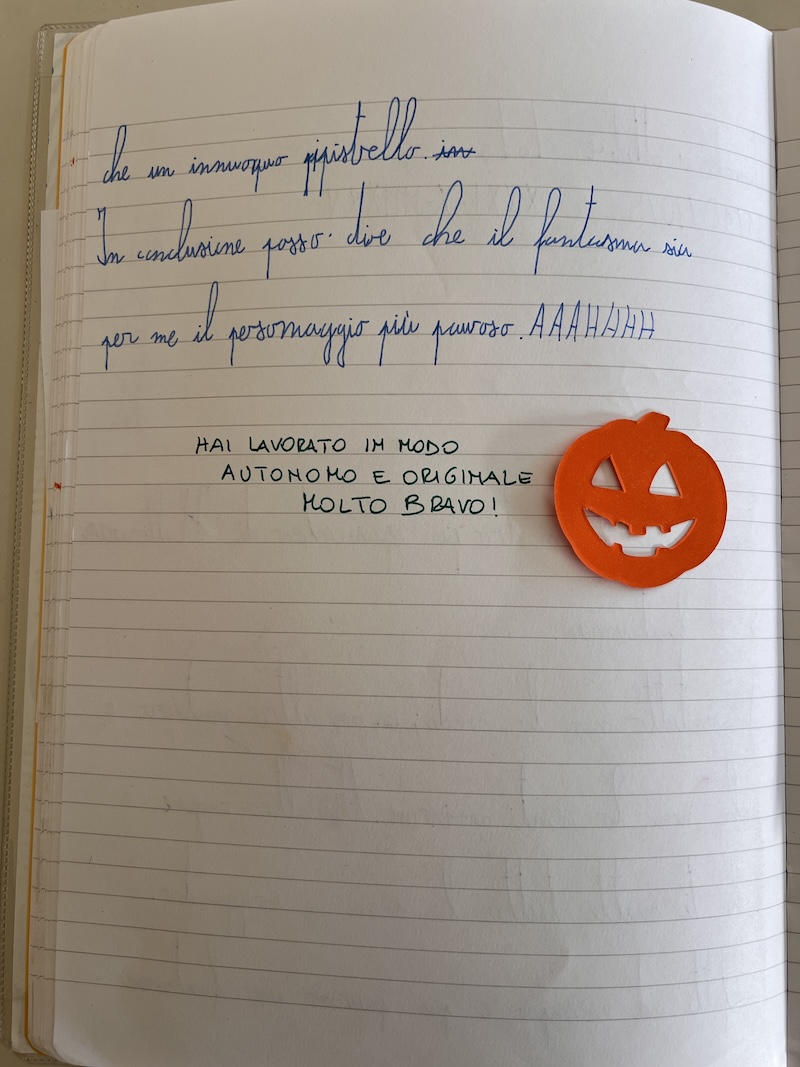 che un innuoquo pipistrello. in
In conclusione posso dire che il fantasma sia
per me il personaggio più pauroso. AAAHHHH
HAI LAVORATO IN MODO
AUTONOMO E ORIGINALE
MOLTO BRAVO!